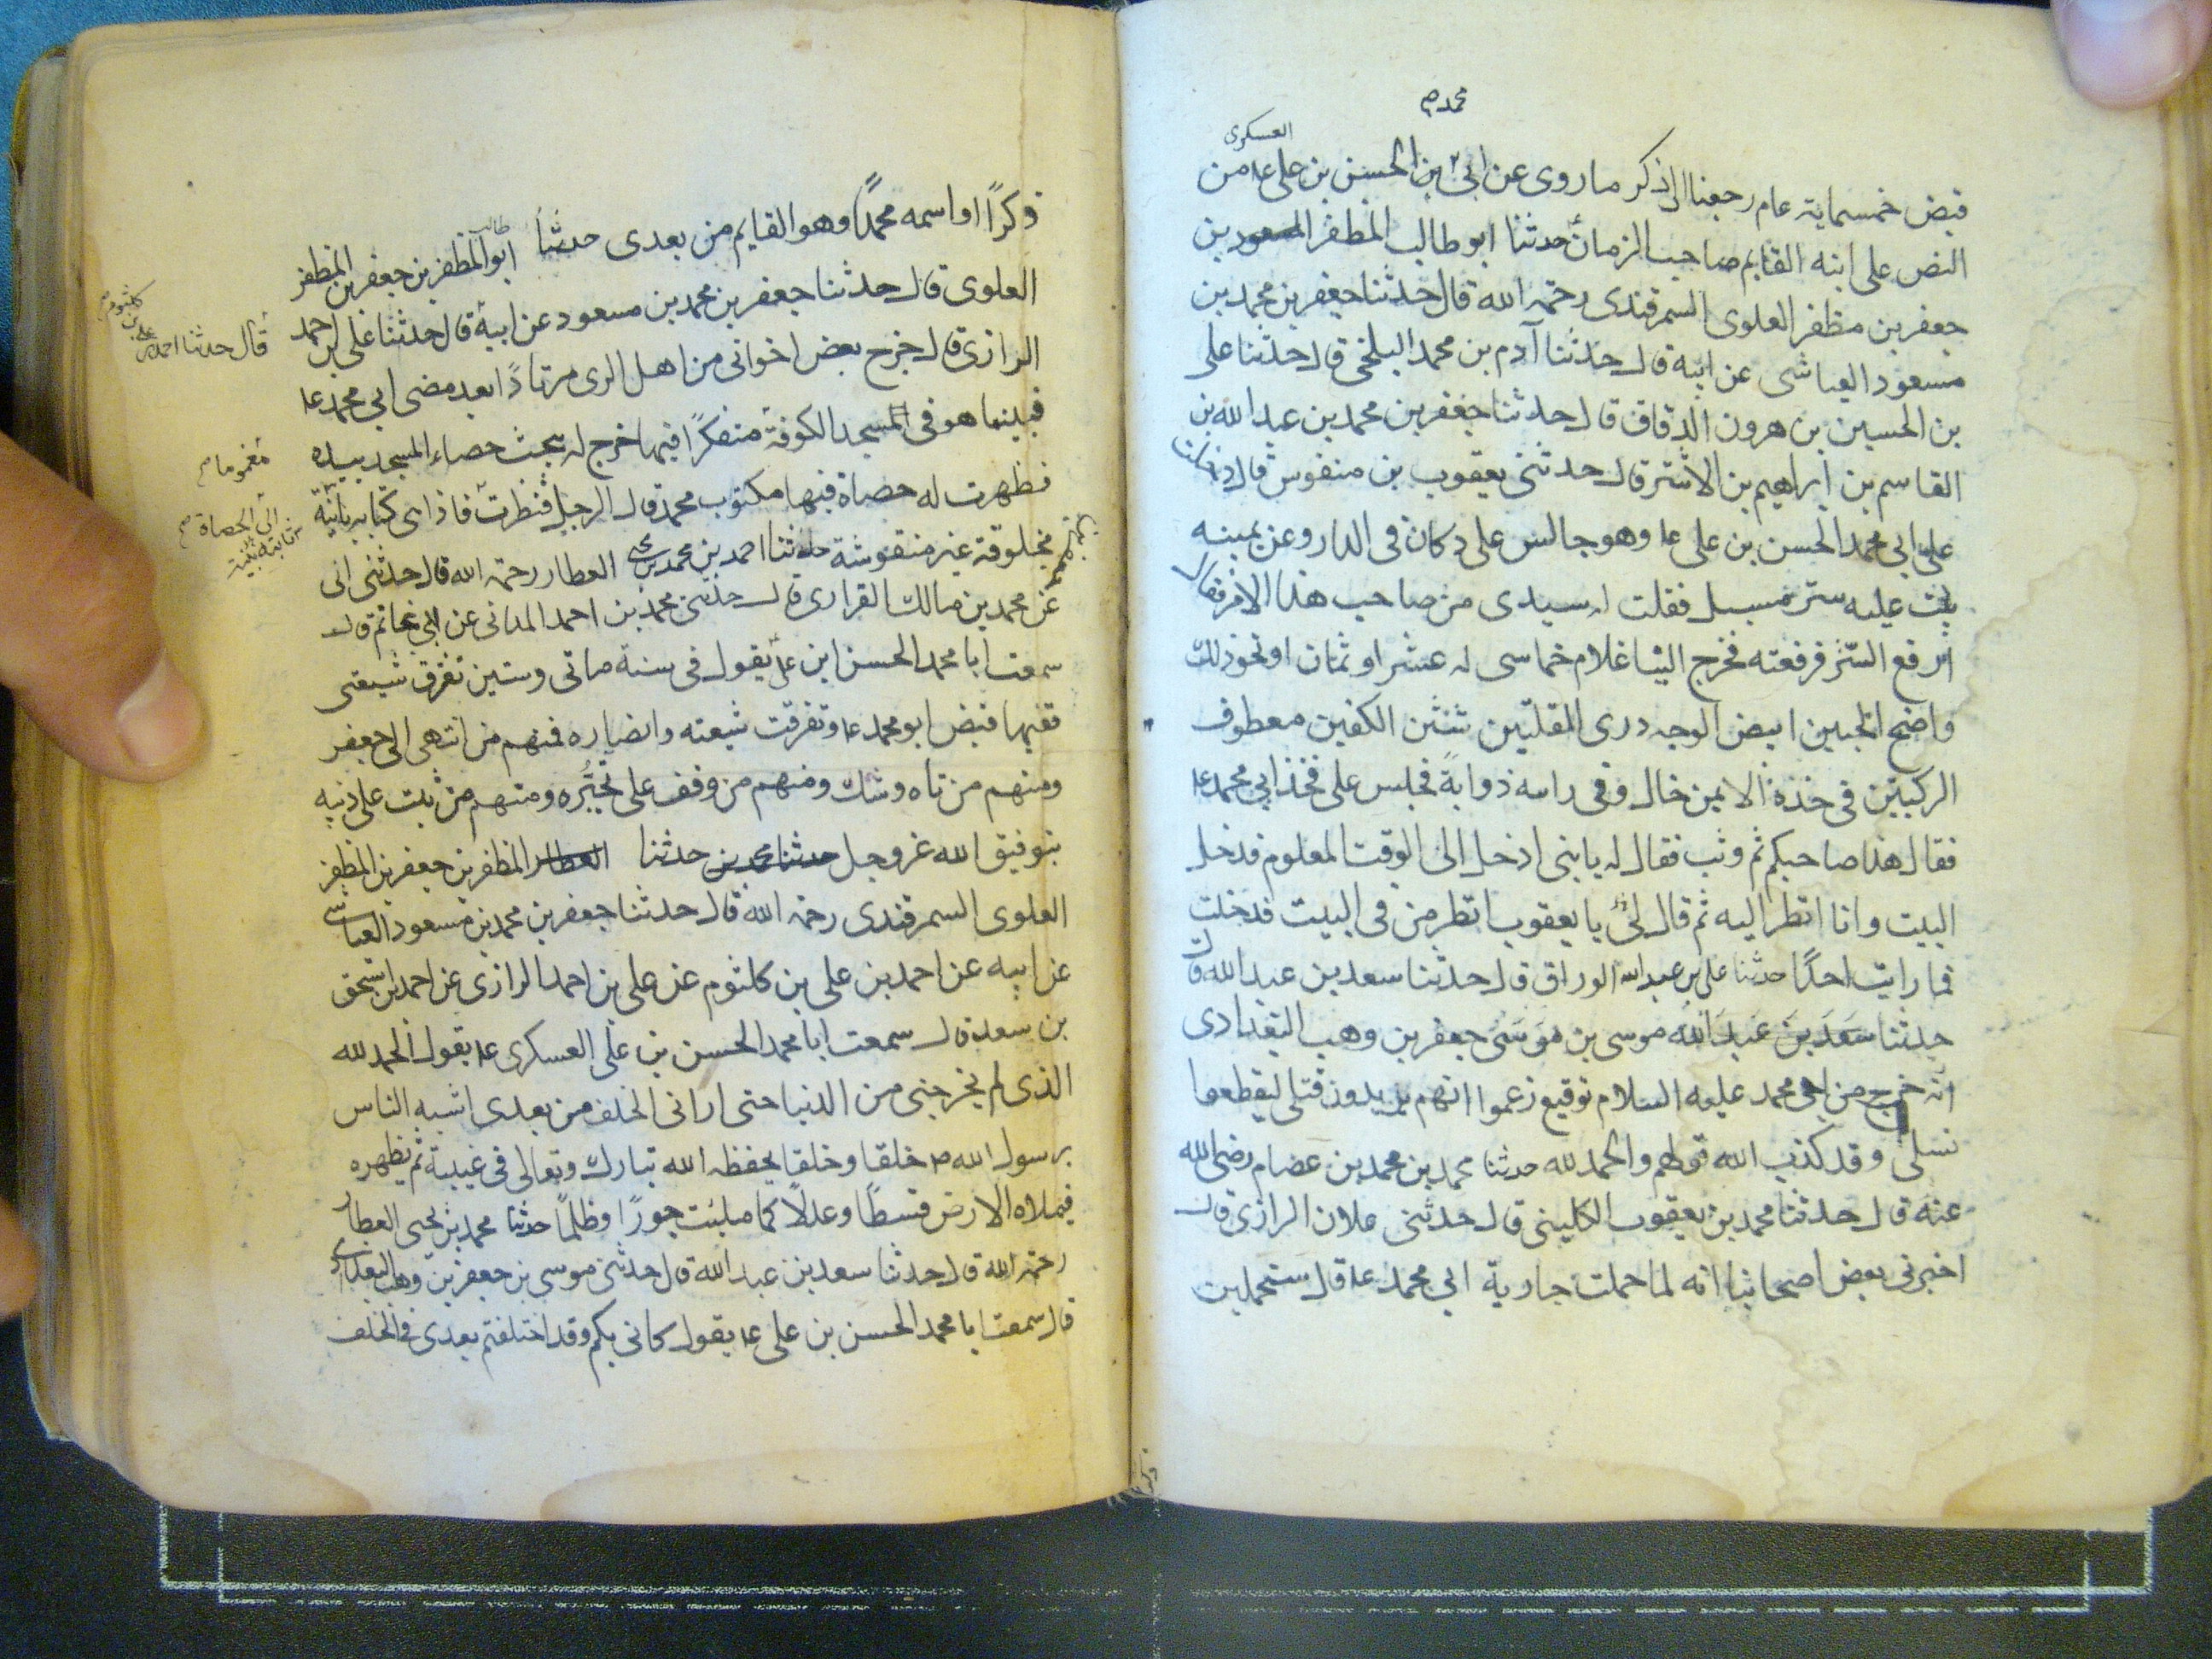 محمد ص
العسكرى
قبض خمسماية عام رجعنا الى ذكر ما روى عن ابى بن الحسن بن على ع من
النص على ابنه القايم صاحب الزمان حدثنا ابو طالب المظفر بن
جعفر بن مظفر العلوى السمرقندى رحمه الله قال حدثنا جعفر بن محمد بن
مسعود العياشى عن ابيه قال حدثنا آدم بن محمد البلخى قال حدثنا على
بن الحسين بن هرون الدقاق قال حدثنا جعفر بن محمد بن عبد الله بن
القاسم بن ابراهيم بن الاشتر قال حدثنى يعقوب بن منفوش قال دخلت
على ابى محمد الحسن بن على ع وهو جالس على دكان فى الدار وعن يمينه
بيت عليه ستر مسبل فقلت له سيدى من صاحب هذا الامر فقال
ارفع الستر فرفعته فخرج الينا غلام خماسى له عشر او ثمان او نحو ذلك
واضح الجبين ابيض الوجه درى المقلتين شثن الكفين معطوف
الركبتين فى خده الايمن خال وفى راسه ذوابة فجلس على فخذ ابى محمد ع
فقال هذا صاحبكم ثم وثب فقال له يا بنى ادخل الى الوقت المعلوم فدخل
البيت وانا انظر اليه ثم قال لى يا يعقوب انظر من فى البيت فدخلت
فما رايت احدا حدثنا على بن عبد الله الوراق قال حدثنا سعد بن عبد الله قال
حدثنا سعد بن عبد الله موسى بن موسى جعفر بن وهب البغدادى
انه خرج من ابى محمد عليه السلام توقيع زعموا انهم يريدون قتلى ليقطعوا
نسلى وقد كذب الله قولهم والحمد لله حدثنا محمد بن محمد بن عصام رضى الله
عنه قال حدثنا محمد بن يعقوب الكلينى قال حدثنى علان الرازى قال
اخبرنى بعض اصحابنا انه لما حملت جارية ابى محمد ع قال ستحملين
ذكرًا واسمه محمدًا وهو القايم من بعدى حدثنا ابو طالب المظفر بن جعفر بن المظفر
العلوى قال حدثنا جعفر بن محمد بن مسعود عن ابيه قال حدثنا على بن احمد
قال حدثنا احمد بن على بن كلثوم
الرازى قال خرج بعض اخوانى من اهل الرى مرتادًا بعد مضى ابى محمد ع
فبينما هو فى المسجد الكوفة متفكرًا فيما خرج له يبحث حصاء المسجد بيده
مغموما
فظهرت له حصاة فيها مكتوب محمد قال الرجل فنظرت فاذا هى كتابة
الى الحصاة
مخلوقة غير منقوشة حدثنا احمد بن محمد بن يحيى العطار رحمه الله قال حدثنى ابى
عن محمد بن مالك الفزارى قال حدثنى محمد بن احمد المدانى عن ابى غانم قال
سمعت ابا محمد الحسن ابن على يقول فى سنة ماتى وستين تفرق شيعتى
ففيها قبض ابو محمد ع وتفرقت شيعته وانصاره فمنهم من انتهى الى جعفر
ومنهم من تاه وشك ومنهم من وقف على تحيره ومنهم من ثبت على دينه
بتوفيق الله عز وجل حدثنا محمد بن حدثنا العطار المظفر بن جعفر بن المظفر
العلوى السمرقندى رحمه الله قال حدثنا جعفر بن محمد بن مسعود العياشى
عن ابيه عن احمد بن على بن كلثوم عن على بن احمد الرازى عن احمد بن اسحق
بن سعد قال سمعت ابا محمد الحسن بن على العسكرى ع يقول الحمد لله
الذى لم يخرجنى من الدنيا حتى ارانى الخلف من بعدى اشبه الناس
برسول الله ص خلقا وخلقا يحفظه الله تبارك وتعالى فى غيبته ثم يظهره
فيملاه الارض قسطًا وعدلًا كما مليت جورًا وظلمًا حدثنا محمد بن يحيى العطار
رحمه الله قال حدثنا سعد بن عبد الله قال حدثنى موسى بن جعفر بن وهب البغدادى
قال سمعت ابا محمد الحسن بن على ع يقول كانى بكم وقد اختلفتم بعدى فى الخلف